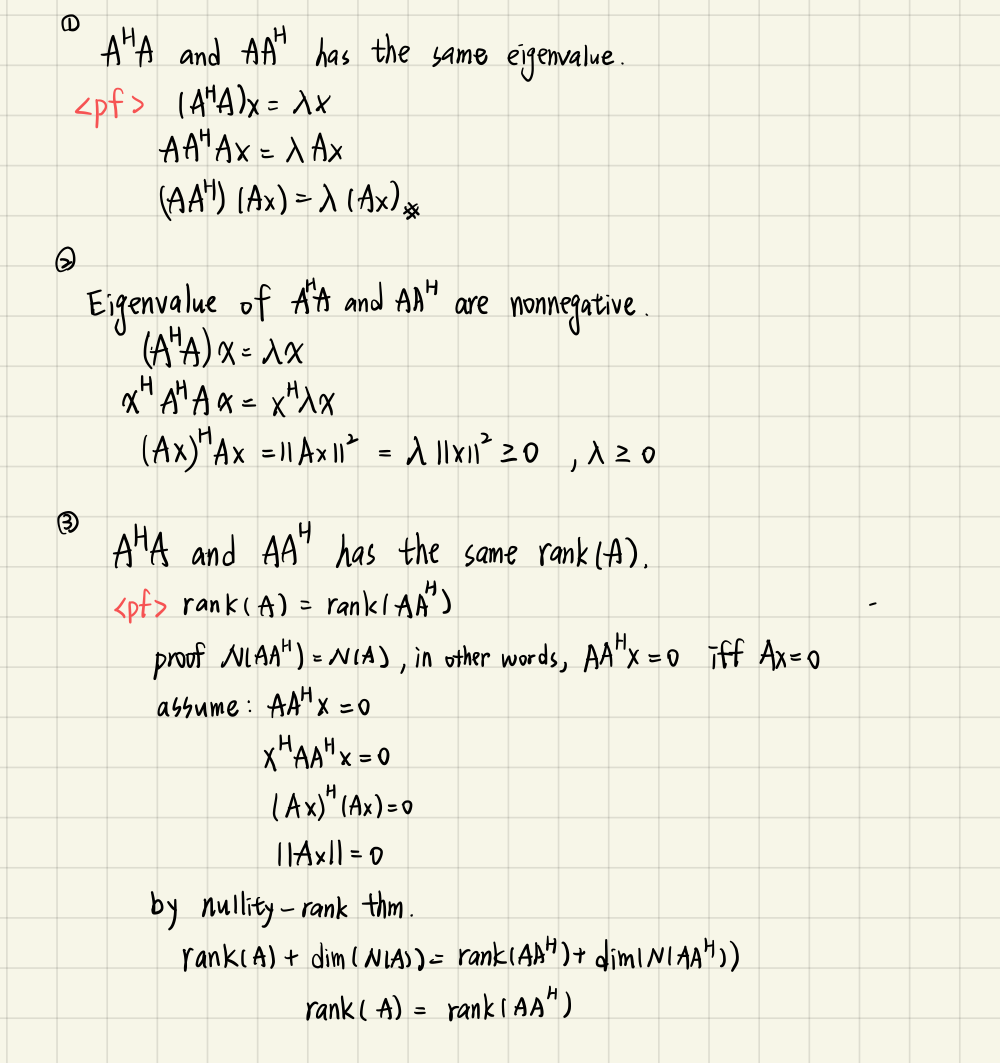 ①
AᴴA and AAᴴ has the same eigenvalue.
<pf> (AᴴA)x = λx
AAᴴAx = λAx
(AAᴴ)(Ax) = λ(Ax) ※
②
Eigenvalue of AᴴA and AAᴴ are nonnegative.
(AᴴA)x = λx
xᴴAᴴAx = xᴴλx
(Ax)ᴴAx = ||Ax||² = λ||x||² ≥ 0 , λ ≥ 0
③
AᴴA and AAᴴ has the same rank(A).
<pf> rank(A) = rank(AAᴴ)
proof N(AAᴴ) = N(A), in other words, AAᴴx = 0 iff Ax = 0
assume: AAᴴx = 0
xᴴAAᴴx = 0
(Ax)ᴴ(Ax) = 0
||Ax|| = 0
by nullity-rank thm.
rank(A) + dim(N(A)) = rank(AAᴴ) + dim(N(AAᴴ))
rank(A) = rank(AAᴴ)